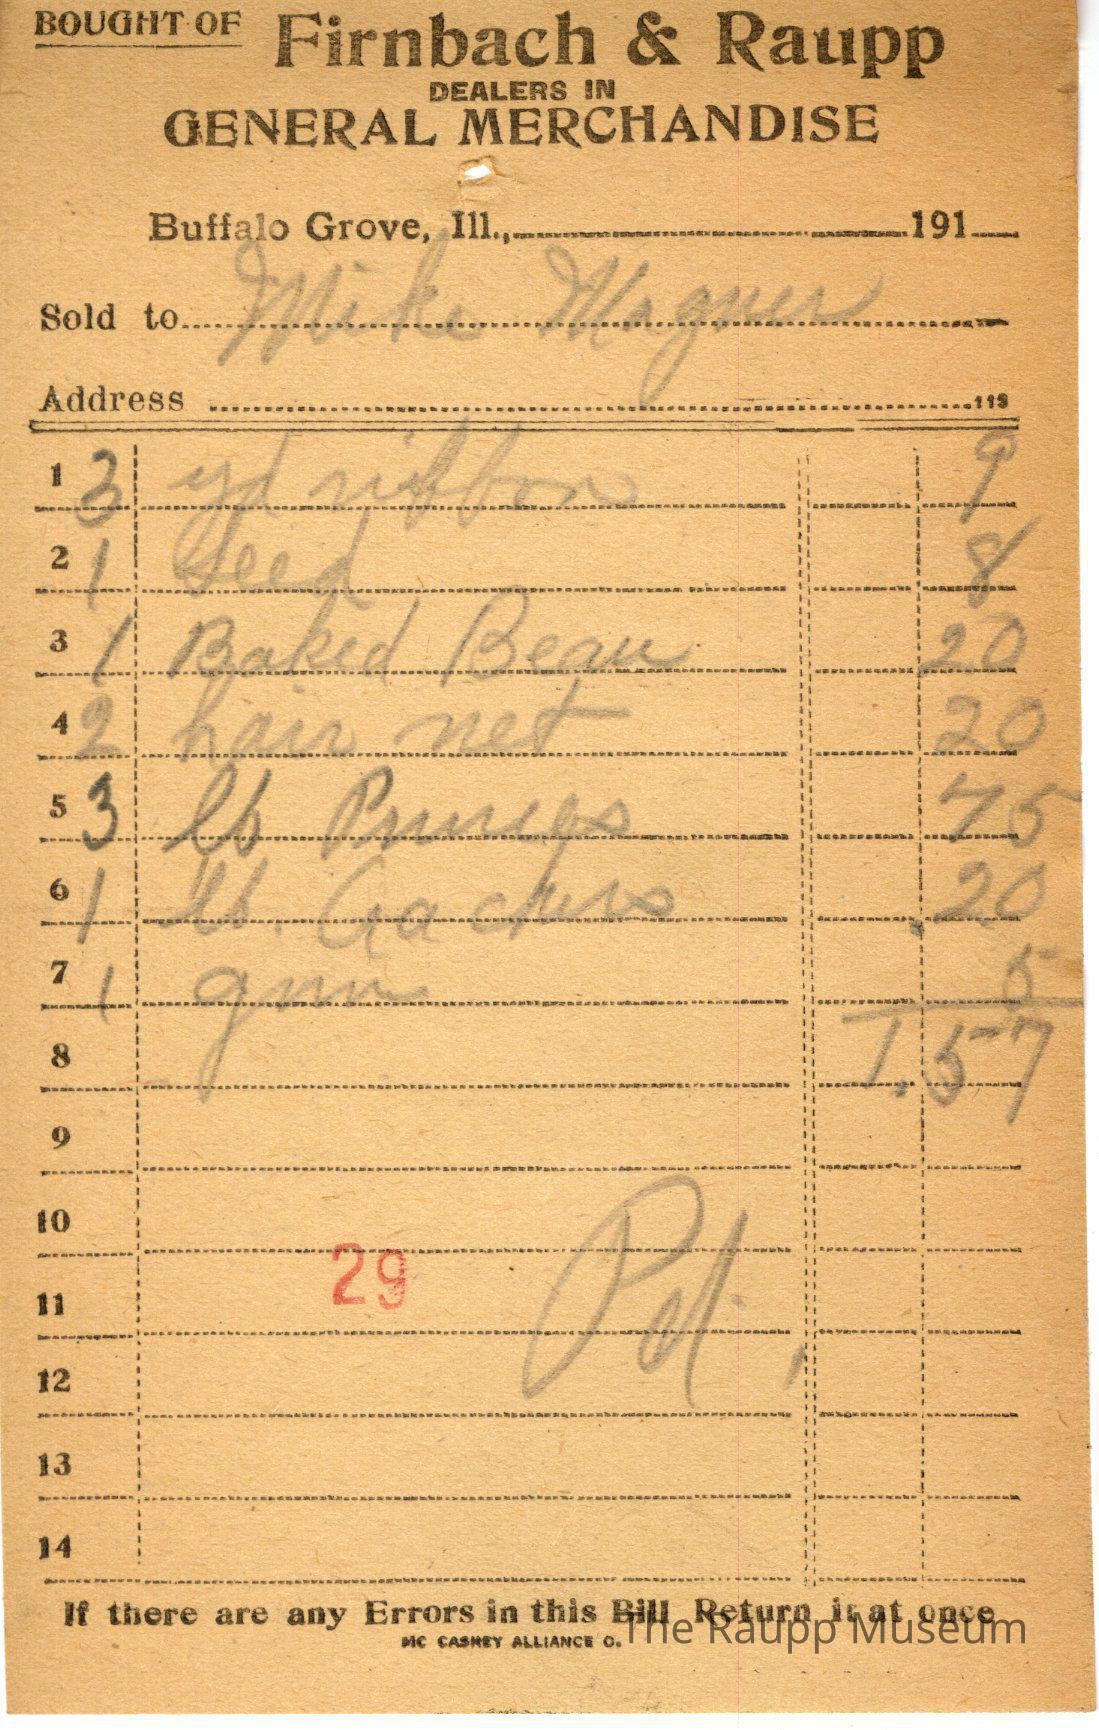 BOUGHT OF Firnbach & Raupp
DEALERS IN
GENERAL MERCHANDISE
Buffalo Grove, Ill., 191
Sold to Mike Wagner
Address 119
1 3 yd ribbon 9
2 1 seed 8
3 1 Baked Bean 20
4 2 hair net 20
5 3 lb Prunes 75
6 1 lb. 20
7 1 5
8 1.57
9
10
11 29 Pd.
12
13
14
If there are any Errors in this Bill Return it at once
MC CASKEY ALLIANCE O.
The Raupp Museum